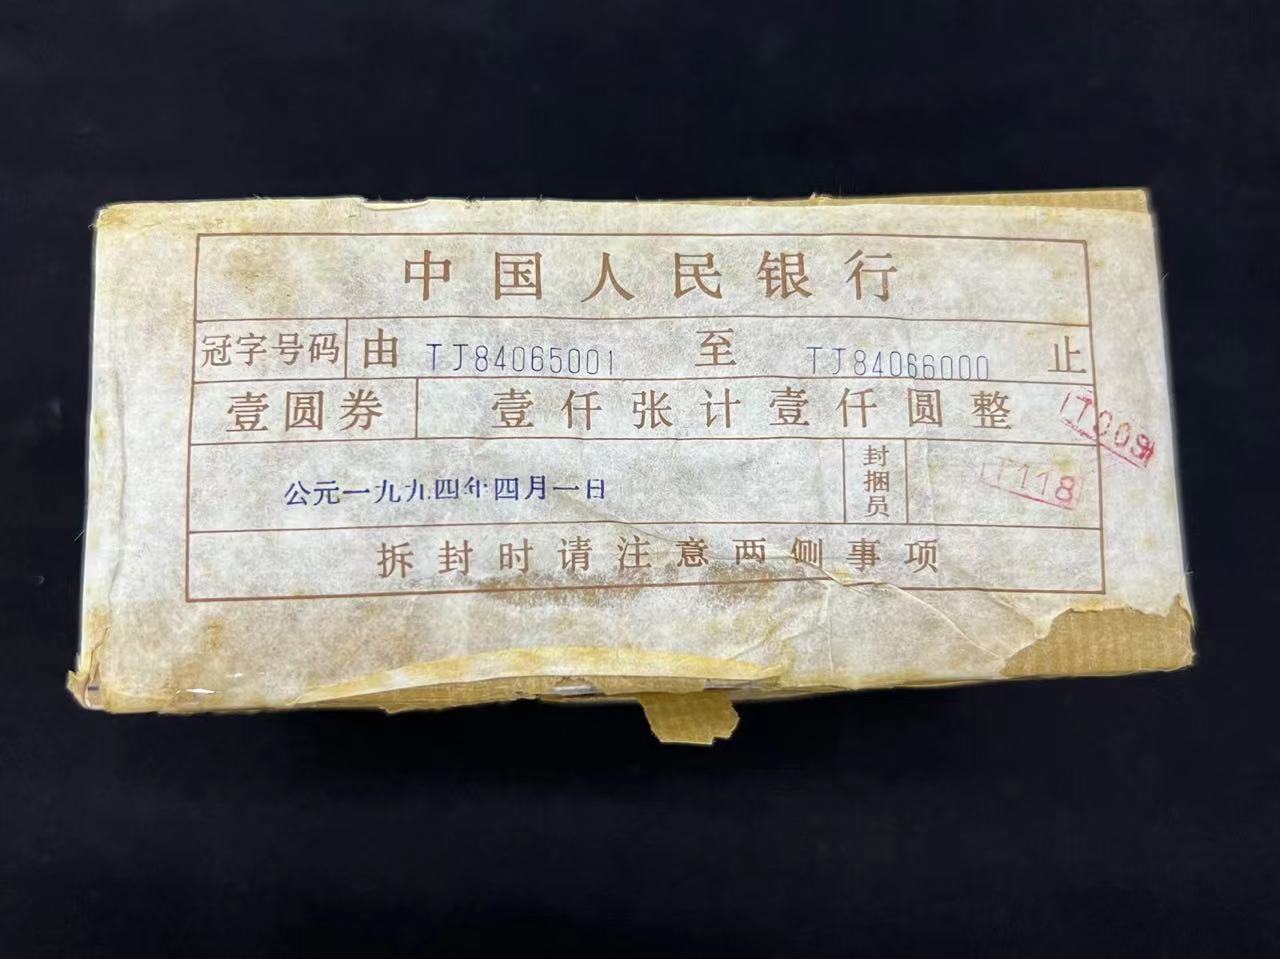 中国人民银行
冠字号码 由 TJ84065001 至 TJ84066000 止
壹圆券 壹仟张计壹仟圆整
T009
公元一九九四年四月一日 封捆员 T118
拆封时请注意两侧事项